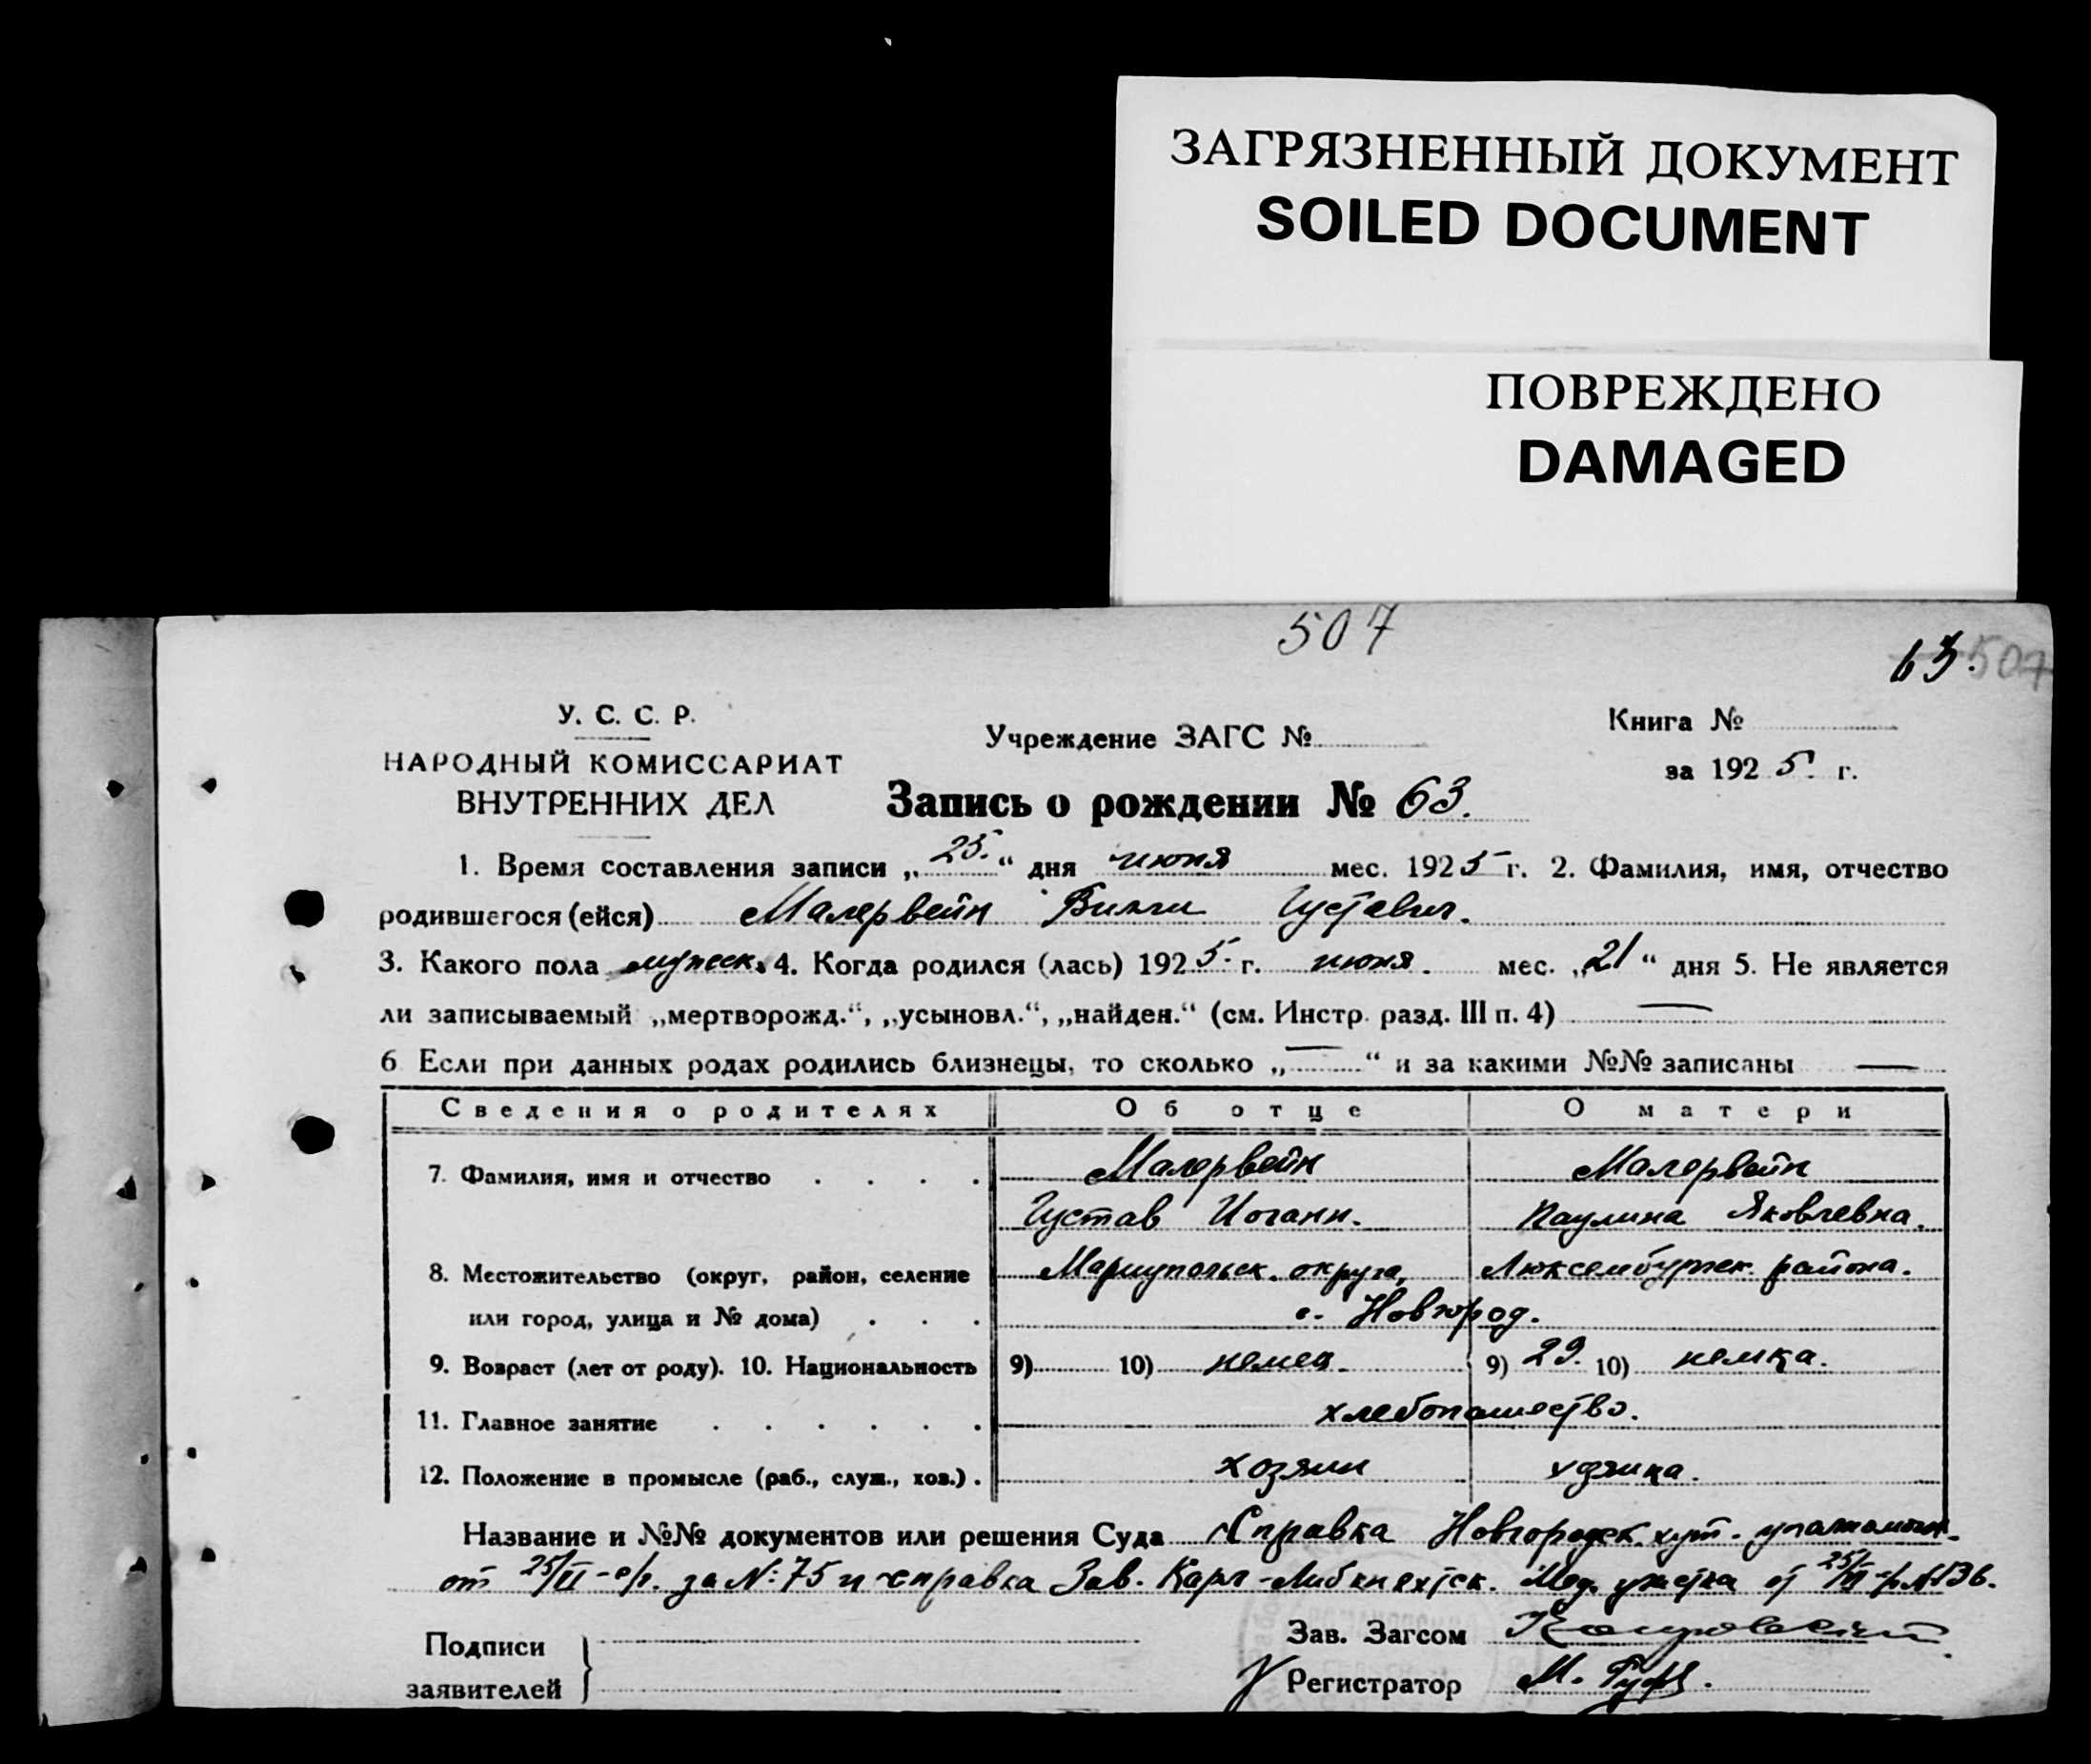 ЗАГРЯЗНЕННЫЙ ДОКУМЕНТ
SOILED DOCUMENT
ПОВРЕЖДЕНО
DAMAGED
507
63. 507
У. С. С. Р.
НАРОДНЫЙ КОМИССАРИАТ
ВНУТРЕННИХ ДЕЛ
Учреждение ЗАГС №
Книга №
за 1925 г.
Запись о рождении № 63.
1. Время составления записи „25.“ дня июня мес. 1925 г. 2. Фамилия, имя, отчество
родившегося (ейся) Малервейн Вилли Густавич.
3. Какого пола мужск. 4. Когда родился (лась) 1925 г. июня. мес. „21“ дня 5. Не является
ли записываемый „мертворожд.“, „усыновл.“, „найден.“ (см. Инстр. разд. III п. 4) —
6 Если при данных родах родились близнецы, то сколько „—“ и за какими №№ записаны —
Сведения о родителях Об отце О матери
7. Фамилия, имя и отчество . . . . Малервейн Малервейн
Густав Иоганн. Паулина Яковлевна.
8. Местожительство (округ, район, селение Мариупольск. округа, Люксембургск. района.
или город, улица и № дома) . . . с. Новгород.
9. Возраст (лет от роду). 10. Национальность 9) 10) немец. 9) 29. 10) немка.
11. Главное занятие . . . . . . хлебопашество.
12. Положение в промысле (раб., служ., хоз.) . хозяин
Название и №№ документов или решения Суда Справка Новгородск. хут.
от 25/VI-с/г. за №: 75 и справка Зав. Карл-Либкнехтск. Мед. участка от 25/VI №136.
Подписи
заявителей
Зав. Загсом
Регистратор М.